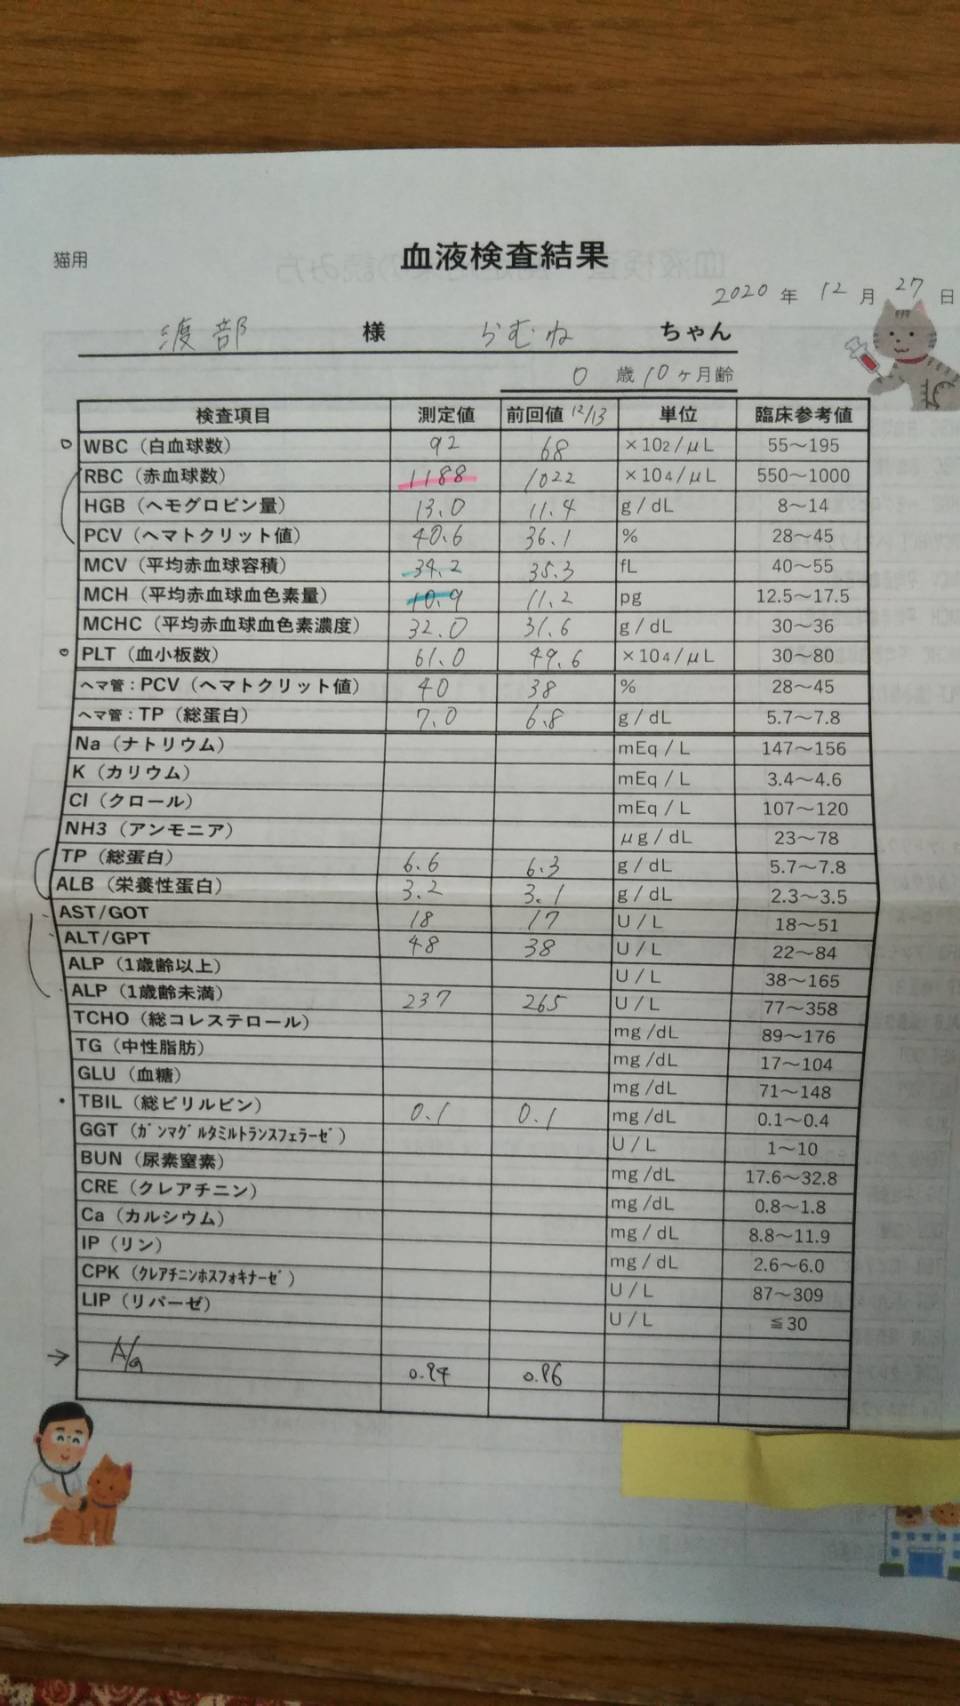 猫用
血液検査結果
2020 年 12 月 27 日
渡部 様 らむね ちゃん
0 歳 10 ヶ月齢
検査項目 測定値 前回値 12/13 単位 臨床参考値
WBC（白血球数） 92 68 ×102/μL 55～195
RBC（赤血球数） 1188 1022 ×104/μL 550～1000
HGB（ヘモグロビン量） 13.0 11.4 g/dL 8～14
PCV（ヘマトクリット値） 40.6 36.1 % 28～45
MCV（平均赤血球容積） 34.2 35.3 fL 40～55
MCH（平均赤血球血色素量） 10.9 11.2 pg 12.5～17.5
MCHC（平均赤血球血色素濃度） 32.0 31.6 g/dL 30～36
PLT（血小板数） 61.0 49.6 ×104/μL 30～80
ヘマ管：PCV（ヘマトクリット値） 40 38 % 28～45
ヘマ管：TP（総蛋白） 7.0 6.8 g/dL 5.7～7.8
Na（ナトリウム） mEq/L 147～156
K（カリウム） mEq/L 3.4～4.6
Cl（クロール） mEq/L 107～120
NH3（アンモニア） μg/dL 23～78
TP（総蛋白） 6.6 6.3 g/dL 5.7～7.8
ALB（栄養性蛋白） 3.2 3.1 g/dL 2.3～3.5
AST/GOT 18 17 U/L 18～51
ALT/GPT 48 38 U/L 22～84
ALP（1歳齢以上） U/L 38～165
ALP（1歳齢未満） 237 265 U/L 77～358
TCHO（総コレステロール） mg/dL 89～176
TG（中性脂肪） mg/dL 17～104
GLU（血糖） mg/dL 71～148
TBIL（総ビリルビン） 0.1 0.1 mg/dL 0.1～0.4
GGT（ｶﾞﾝﾏｸﾞﾙﾀﾐﾙﾄﾗﾝｽﾌｪﾗｰｾﾞ） U/L 1～10
BUN（尿素窒素） mg/dL 17.6～32.8
CRE（クレアチニン） mg/dL 0.8～1.8
Ca（カルシウム） mg/dL 8.8～11.9
IP（リン） mg/dL 2.6～6.0
CPK（ｸﾚｱﾁﾆﾝﾎｽﾌｫｷﾅｰｾﾞ） U/L 87～309
LIP（リパーゼ） U/L ≦30
→ A/g 0.94 0.96